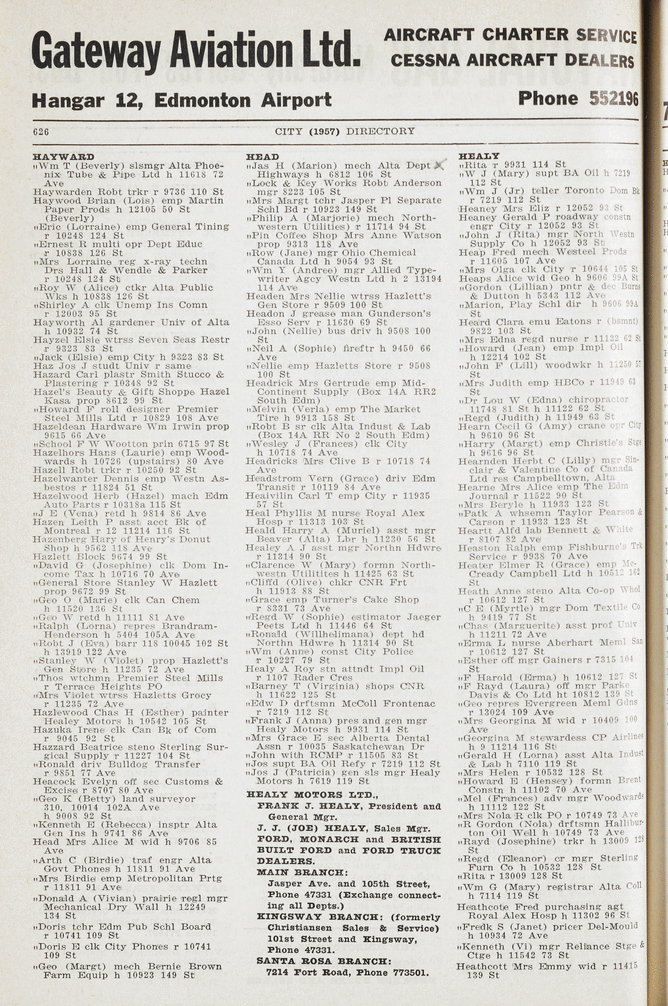 Gateway Aviation Ltd.
AIRCRAFT CHARTER SERVICE
CESSNA AIRCRAFT DEALERS
Hangar 12, Edmonton Airport
Phone 552196
626
CITY (1957) DIRECTORY
HAYWARD
„Wm T (Beverly) slsmgr Alta Phoe-
nix Tube & Pipe Ltd h 11618 72
Ave
Haywarden Robt trkr r 9736 110 St
Haywood Brian (Lois) emp Martin
Paper Prods h 12105 50 St
(Beverly)
„Eric (Lorraine) emp General Tining
r 10248 124 St
„Ernest R multi opr Dept Educ
r 10838 126 St
„Mrs Lorraine reg x-ray techn
Drs Hall & Wendle & Parker
r 10248 124 St
„Roy W (Alice) ctkr Alta Public
Wks h 10838 126 St
„Shirley A clk Unemp Ins Comn
r 12003 95 St
Hayworth Al gardener Univ of Alta
h 10932 74 St
Hayzel Elsie wtrss Seven Seas Restr
r 9323 83 St
„Jack (Elsie) emp City h 9323 83 St
Haz Jos J studt Univ r same
Hazard Carl plastr Smith Stucco &
Plastering r 10348 92 St
Hazel's Beauty & Gift Shoppe Hazel
Kasa prop 8612 99 St
„Howard F roll designer Premier
Steel Mills Ltd r 10829 108 Ave
Hazeldean Hardware Wm Irwin prop
9615 66 Ave
„School F W Wootton prin 6715 97 St
Hazelhors Hans (Laurie) emp Wood-
wards h 10726 (upstairs) 80 Ave
Hazell Robt trkr r 10250 92 St
Hazelwanter Dennis emp Westn As-
bestos r 11824 51 St
Hazelwood Herb (Hazel) mach Edm
Auto Parts r 10318a 115 St
„J E (Vena) retd h 9814 86 Ave
Hazen Leith P asst acct Bk of
Montreal r 12 11214 116 St
Hazenberg Hary of Henry's Donut
Shop h 9562 118 Ave
Hazlett Block 9674 99 St
„David G (Josephine) clk Dom In-
come Tax h 10716 70 Ave
„General Store Stanley W Hazlett
prop 9672 99 St
„Geo O (Marie) clk Can Chem
h 11520 136 St
„Geo W retd h 11111 81 Ave
„Ralph (Lorna) repres Brandram-
Henderson h 5404 105A Ave
„Robt J (Eva) barr 118 10045 102 St
h 13919 122 Ave
„Stanley W (Violet) prop Hazlett's
Gen Store h 11235 72 Ave
„Thos wtchmn Premier Steel Mills
r Terrace Heights PO
„Mrs Violet wtrss Hazletts Grocy
r 11235 72 Ave
Hazlewood Chas H (Esther) painter
Healey Motors h 10542 105 St
Hazuka Irene clk Can Bk of Com
r 9045 92 St
Hazzard Beatrice steno Sterling Sur-
gical Supply r 11227 104 St
„Ronald driv Bulldog Transfer
r 9851 77 Ave
Heacock Evelyn off sec Customs &
Excise r 8707 80 Ave
„Geo K (Betty) land surveyor
310, 10014 102A Ave
h 9008 92 St
„Kenneth E (Rebecca) insptr Alta
Gen Ins h 9741 86 Ave
Head Mrs Alice M wid h 9706 85
Ave
„Arth C (Birdie) traf engr Alta
Govt Phones h 11811 91 Ave
„Mrs Birdie emp Metropolitan Prtg
r 11811 91 Ave
„Donald A (Vivian) prairie regl mgr
Mechanical Dry Wall h 12249
134 St
„Doris tchr Edm Pub Schl Board
r 10741 109 St
„Doris E clk City Phones r 10741
109 St
„Geo (Margt) mech Bernie Brown
Farm Equip h 10923 149 St
HEAD
„Jas H (Marion) mech Alta Dept
Highways h 6812 106 St
„Lock & Key Works Robt Anderson
mgr 8223 105 St
„Mrs Margt tchr Jasper Pl Separate
Schl Bd r 10923 149 St
„Philip A (Marjorie) mech North-
western Utilities) r 11714 94 St
„Pin Coffee Shop Mrs Anne Watson
prop 9313 118 Ave
„Row (Jane) mgr Ohio Chemical
Canada Ltd h 9054 93 St
„Wm Y (Andree) mgr Allied Type-
writer Agcy Westn Ltd h 2 13194
114 Ave
Headen Mrs Nellie wtrss Hazlett's
Gen Store r 9509 100 St
Headon J grease man Gunderson's
Esso Serv r 11630 69 St
„John (Nellie) bus driv h 9508 100
St
„Neil A (Sophie) ireftr h 9450 66
Ave
„Nellie emp Hazletts Store r 9508
100 St
Headrick Mrs Gertrude emp Mid-
Continent Supply (Box 14A RR2
South Edm)
„Melvin (Verla) emp The Market
Tire h 9913 158 St
„Robt B sr clk Alta Indust & Lab
(Box 14A RR No 2 South Edm)
„Wesley J (Frances) clk City
h 10718 74 Ave
Headricks Mrs Clive B r 10718 74
Ave
Headstrom Vern (Grace) driv Edm
Transit r 10119 84 Ave
Heaivilin Carl T emp City r 11935
57 St
Heal Phyllis M nurse Royal Alex
Hosp r 11313 103 St
Heald Harry A (Muriel) asst mgr
Beaver (Alta) Lbr h 11230 56 St
Healey A J asst mgr Northn Hdwre
r 11314 90 St
„Clarence W (Mary) formn North-
western Utilitites h 11425 63 St
„Cliffd (Olive) chkr CNR Frt
h 11913 88 St
„Grace emp Turner's Cake Shop
r 8331 73 Ave
„Regd W (Sophie) estimator Jaeger
Peets Ltd h 11446 64 St
„Ronald (Willhelmana) dept hd
Northn Hdwre h 11314 90 St
„Wm (Anne) const City Police
r 10227 79 St
Healy A Roy stn attndt Impl Oil
r 1107 Rader Cres
„Barney T (Virginia) shops CNR
h 11622 125 St
„Edw D drftsmn McColl Frontenac
r 7219 112 St
„Frank J (Anna) pres and gen mgr
Healy Motors h 9931 114 St
„Mrs Grace E sec Alberta Dental
Assn r 10035 Saskatchewan Dr
„John with RCMP r 11505 83 St
„Jos supt BA Oil Refy r 7219 112 St
„Jos J (Patricia) gen sls mgr Healy
Motors h 7619 119 St
HEALY MOTORS LTD.,
FRANK J. HEALY, President and
General Mgr.
J. J. (JOE) HEALY, Sales Mgr.
FORD, MONARCH and BRITISH
BUILT FORD and FORD TRUCK
DEALERS.
MAIN BRANCH:
Jasper Ave. and 105th Street,
Phone 47331 (Exchange connect-
ing all Depts.)
KINGSWAY BRANCH: (formerly
Christiansen Sales & Service)
101st Street and Kingsway,
Phone 47331.
SANTA ROSA BRANCH:
7214 Fort Road, Phone 773501.
HEALY
„Rita r 9931 114 St
„W J (Mary) supt BA Oil h 7219
112 St
„Wm J (Jr) teller Toronto Dom Bk
r 7219 112 St
Heaney Mrs Eliz r 12052 93 St
Heaney Gerald P roadway constn
engr City r 12052 93 St
„John J (Rita) mgr North Westn
Supply Co h 12052 93 St
Heap Fred mech Westeel Prods
r 11605 107 Ave
„Mrs Olga clk City r 10644 105 St
Heaps Alice wid Geo h 9606 99A St
„Gordon (Lillian) pntr & dec Burns
& Dutton h 5343 112 Ave
„Marion, Play Schl dir h 9606 99A
St
Heard Clara emu Eatons r (bsmnt)
9822 103 St
„Mrs Edna regd nurse r 11122 62 St
„Howard (Jean) emp Impl Oil
h 12214 102 St
„John F (Lill) woodwkr h 11250 57
St
„Mrs Judith emp HBCo r 11949 63
St
„Dr Lou W (Edna) chiropractor
11748 81 St h 11122 62 St
„Regd (Judith) h 11949 63 St
Hearn Cecil G (Amy) crane opr City
h 9610 96 St
„Harry (Margt) emp Christie's Stge
h 9616 96 St
Hearnden Herbt C (Lilly) mgr Sin-
clair & Valentine Co of Canada
Ltd res Campbelltown, Alta
Hearne Mrs Alice emp The Edm
Journal r 11522 90 St
„Mrs Beryle h 11933 123 St
„Patk A whsemn Taylor Pearson &
Carson r 11933 123 St
Heartt Alfd lab Bennett & White
r 8107 82 Ave
Heaston Ralph emp Fishburne's Trk
Service r 9938 70 Ave
Heater Elmer R (Grace) emp Mc-
Cready Campbell Ltd h 10512 162
St
Heath Anne steno Alta Co-op Whol
r 10612 127 St
„C E (Myrtle) mgr Dom Textile Co
h 9419 77 St
„Chas (Marguerite) asst prof Univ
h 11211 72 Ave
„Erma L nurse Aberhart Meml San
r 10612 127 St
„Esther off mgr Gainers r 7315 104
St
„F Harold (Erma) h 10612 127 St
„F Rayd (Laura) off mgr Parke
Davis & Co Ltd ht 10812 139 St
„Geo repres Evergreen Meml Gdns
r 13024 109 Ave
„Mrs Georgina M wid r 10409 100
Ave
„Georgina M stewardess CP Airlines
h 9 11214 116 St
„Gerald H (Lorna) asst Alta Indust
& Lab h 7119 119 St
„Mrs Helen r 10532 128 St
„Howard E (Hensey) formn Brent
Constn h 11102 70 Ave
„Mel (Frances) adv mgr Woodwards
h 11112 122 St
„Mrs Nola R clk PO r 10749 73 Ave
„R Gordon (Nola) drftsmn Hallibur-
ton Oil Well h 10749 73 Ave
„Rayd (Josephine) trkr h 13009 128
St
„Regd (Eleanor) cr mgr Sterling
Furn Co h 10532 128 St
„Rita r 13009 128 St
„Wm G (Mary) registrar Alta Coll
h 7114 119 St
Heathcote Fred purchasing agt
Royal Alex Hosp h 11302 96 St
„Fredk S (Janet) pricer Del-Mould
h 10934 72 Ave
„Kenneth (Vi) mgr Reliance Stge &
Ctge h 11542 73 St
Heathcott Mrs Emmy wid r 11415
139 St